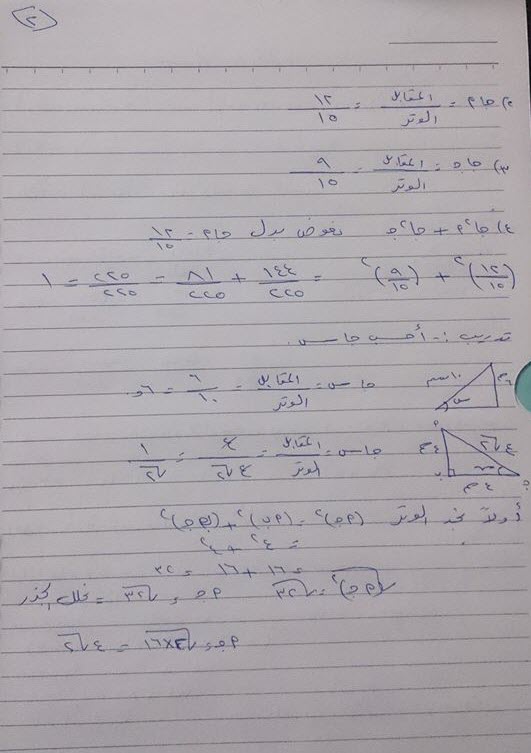 ٢
٢) جا م = المقابل / الوتر = ١٢ / ١٥
٣) جا هـ = المقابل / الوتر = ٩ / ١٥
٤) جا٢م + جا٢هـ نعوض بدل جا م = ١٢ / ١٥
(١٢ / ١٥)٢ + (٩ / ١٥)٢ = ١٤٤ / ٢٢٥ + ٨١ / ٢٢٥ = ٢٢٥ / ٢٢٥ = ١
تدريب :- أحسب جا س.
١٠سم ٦م س
جا س = المقابل / الوتر = ٦ / ١٠ = ٦و
جا س = المقابل / الوتر = ٤ / ٤√٢ = ١ / √٢
٤م ٤√٢ س ٤م
أولاً نجد الوتر (م هـ)٢ = (م ب)٢ + (ب هـ)٢
= ٤٢ + ٤٢
= ١٦ + ١٦ = ٣٢
√(م هـ)٢ = √٣٢ م هـ = √٣٢ = نحلل الجذر
م هـ = √١٦×٢ = ٤√٢